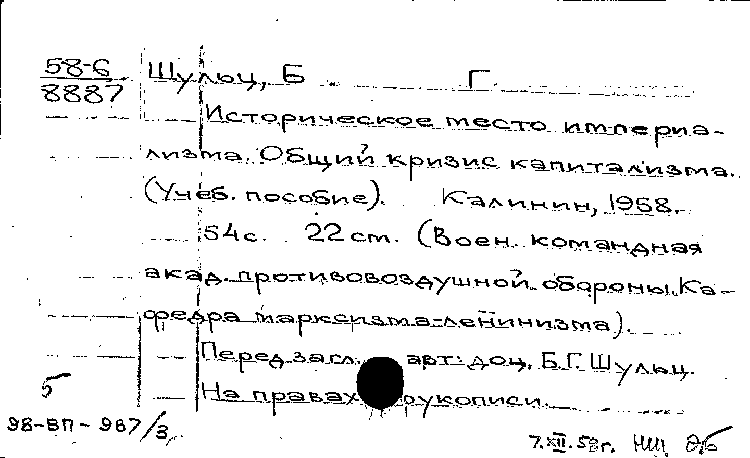 58-6
8887
Шульц, Б. Г.
Историческое место империа-
лизма. Общий кризис капитализма.
(Учеб. пособие). Калинин, 1958.
54с. 22см. (Воен. командная
акад. противовоздушной обороны. Ка-
федра марксизма-ленинизма).
Перед загл. авт.: доц. Б.Г. Шульц.
На правах рукописи.
5
98-ВП-987/3
7.XII.58г.